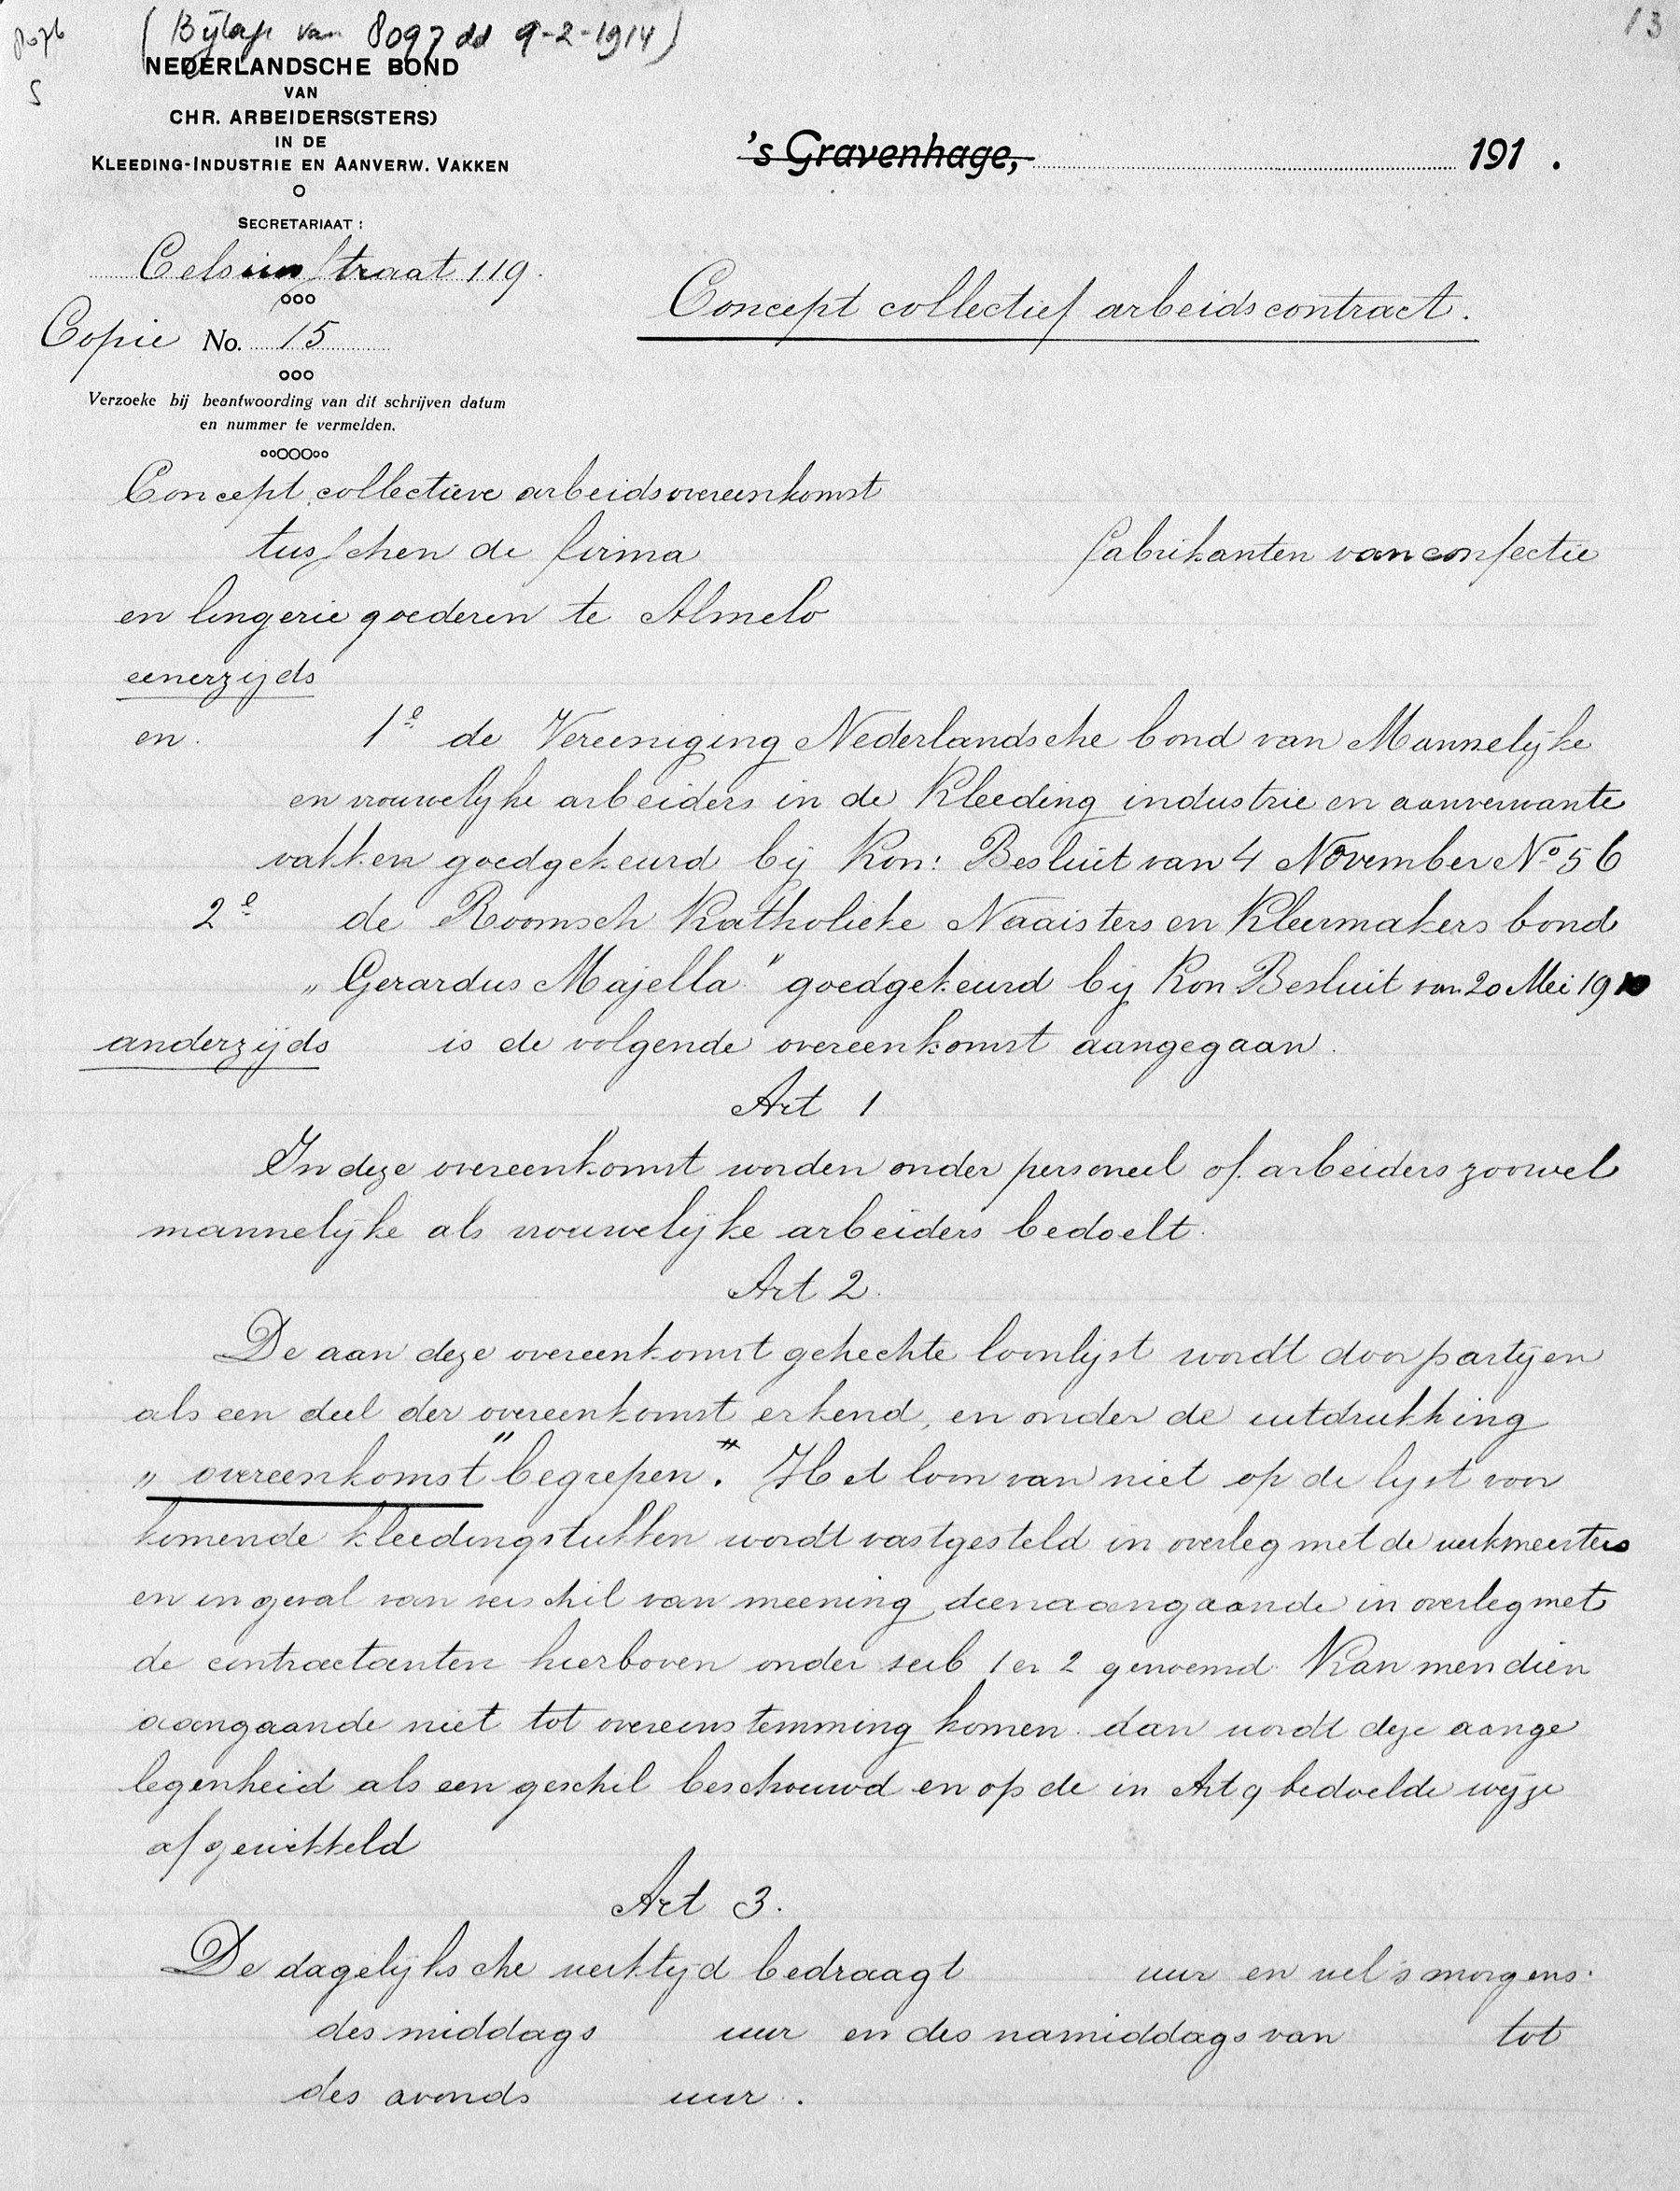 13
(Bijlage van 8097 dd 9-2-1914)
S
NEDERLANDSCHE BOND
VAN
CHR. ARBEIDERS(STERS)
IN DE
KLEEDING-INDUSTRIE EN AANVERW. VAKKEN
's Gravenhage, 191 .
SECRETARIAAT:
Celsiusstraat 119.
Concept collectief arbeidscontract.
Copie No. 15
Verzoeke bij beantwoording van dit schrijven datum
en nummer te vermelden.
Concept collectieve arbeidsovereenkomst
tusschen de firma fabrikanten van confectie
en lingerie goederen te Almelo
eenerzijds
en. 1e de Vereeniging Nederlandsche bond van Mannelijke
en vrouwelijke arbeiders in de Kleeding industrie en aanverwante
vakken goedgekeurd bij Kon: Besluit van 4 November No 56
2e de Roomsch Katholieke Naaisters en Kleermakers bond
„Gerardus Majella" goedgekeurd bij Kon Besluit van 20 Mei 1910
anderzijds is de volgende overeenkomst aangegaan.
Art 1
In deze overeenkomst worden onder personeel of arbeiders zoowel
mannelijke als vrouwelijke arbeiders bedoelt.
Art 2.
De aan deze overeenkomst gehechte loonlijst wordt door partijen
als een deel der overeenkomst erkend, en onder de uitdrukking
„overeenkomst" begrepen. Het loon van niet op de lijst voor
komende kleedingstukken wordt vastgesteld in overleg met de werkmeesters
en in geval van verschil van meening dienaangaande in overleg met
de contractanten hierboven onder sub 1 en 2 genoemd. Kan men dien
aangaande niet tot overeenstemming komen. dan wordt deze aange
legenheid als een geschil beschouwd en op de in Art 9 bedoelde wijze
afgewikkeld
Art 3.
De dagelijksche werktijd bedraagt uur en wel 's morgens.
des middags uur en des namiddags van tot
des avonds uur.